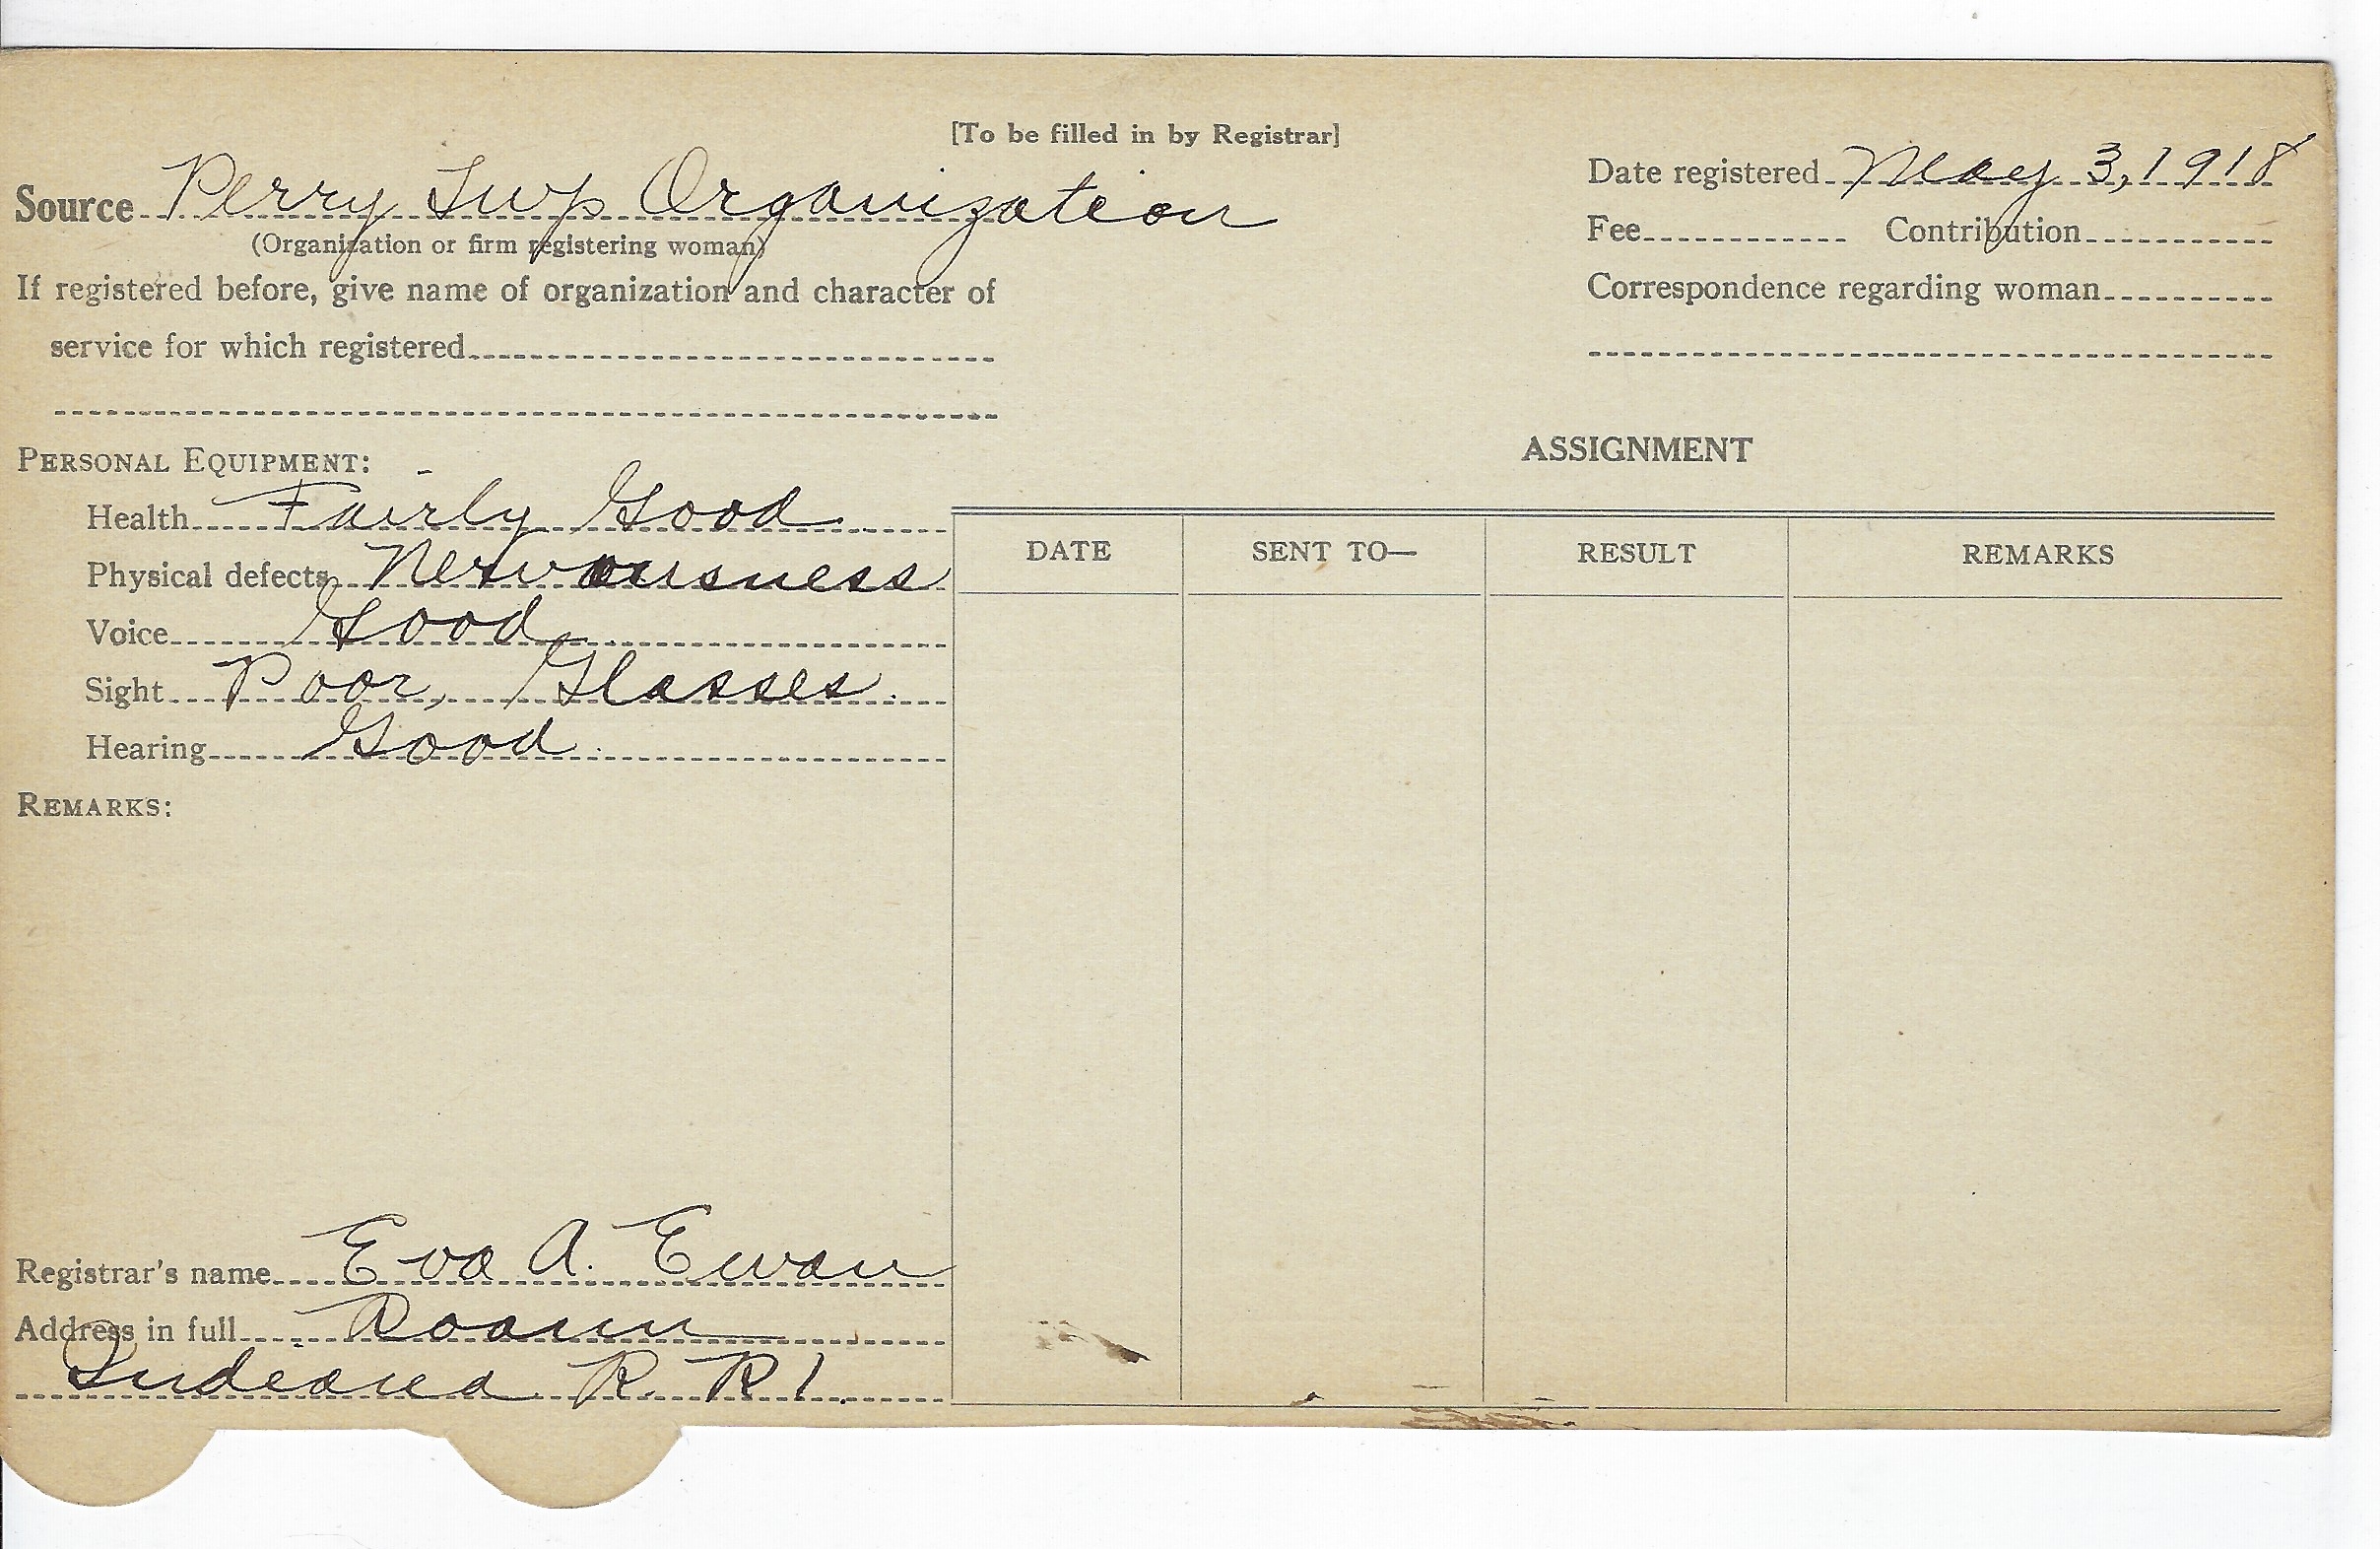 [To be filled in by Registrar]
Source Perry Twp Organization
(Organization or firm registering woman)
If registered before, give name of organization and character of
service for which registered
Date registered May 3, 1918
Fee Contribution
Correspondence regarding woman
PERSONAL EQUIPMENT:
Health Fairly Good
Physical defects Nervousness
Voice Good
Sight Poor, Glasses.
Hearing Good.
REMARKS:
ASSIGNMENT
DATE SENT TO— RESULT REMARKS
Registrar's name Eva A. Ewan
Address in full Roann
Indiana R. R 1.